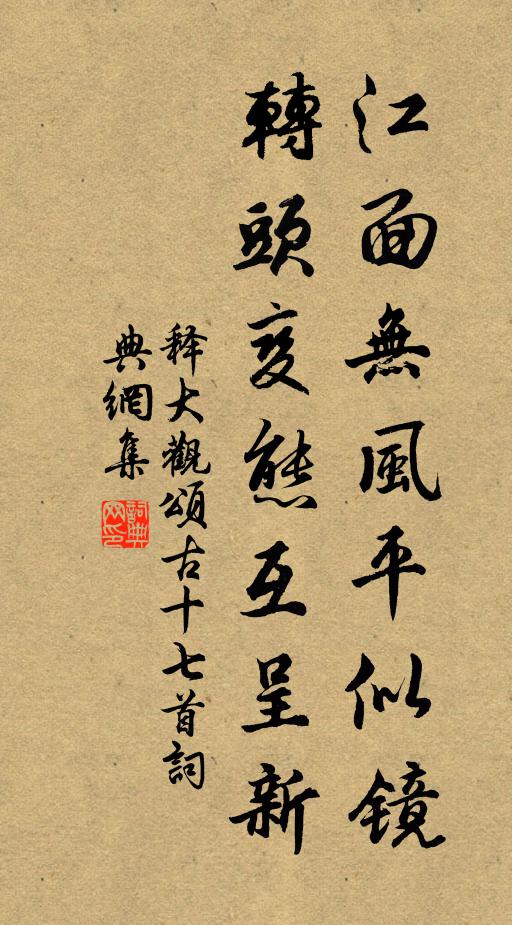 江面無風平似镜
轉頭变態互呈新
释大觀頌古十七首詞
典網集
詞典网印